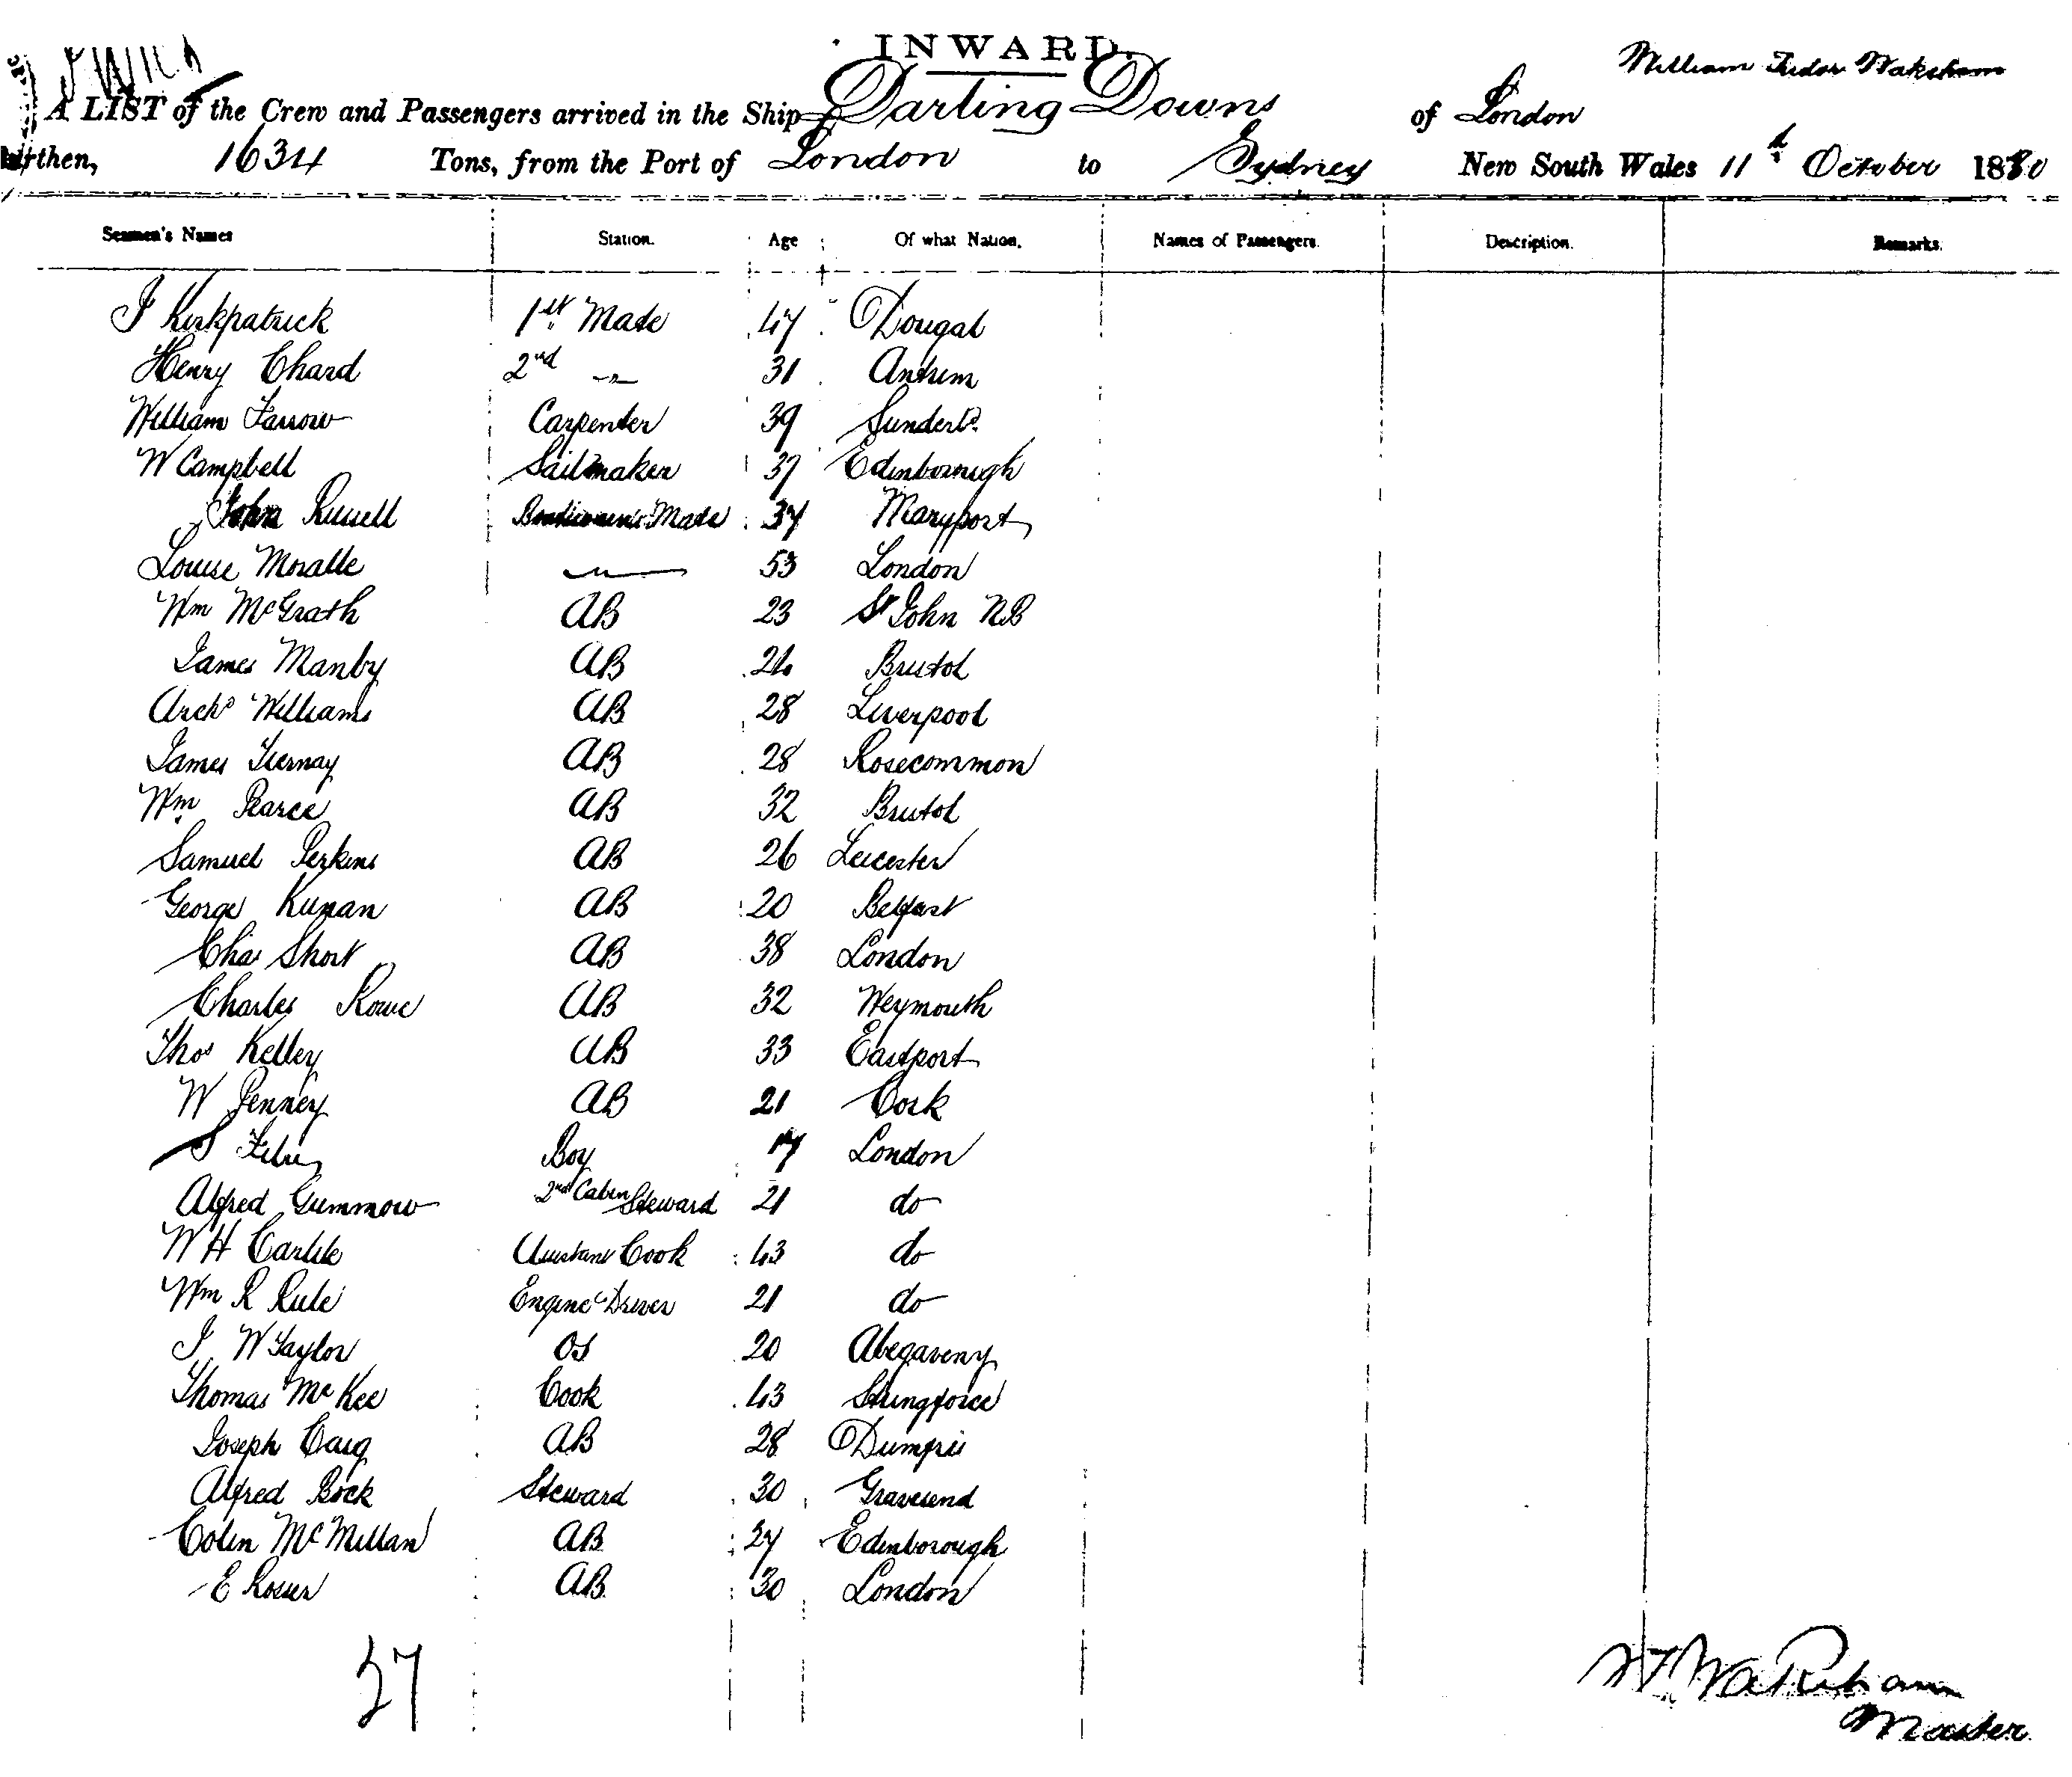 INWARD.
William Tudor Wakeham
A LIST of the Crew and Passengers arrived in the Ship Darling Downs of London
Burthen, 1634 Tons, from the Port of London to Sydney New South Wales 11th October 1880
Seamen's Names Station. Age Of what Nation. Names of Passengers. Description. Remarks.
J Kirkpatrick 1st Mate 47 Dougal
Henry Chard 2nd -"- 31 Antrim
William Farrow Carpenter 39 Sunderld.
W Campbell Sailmaker 37 Edinborough
John Russell Mate 34 Maryport
Louise Moralle -"- 53 London
Wm McGrath AB 23 St John NB
James Manby AB 24 Bristol
Archd Williams AB 28 Liverpool
James Tiernay AB 28 Rosecommon
Wm Pearce AB 32 Bristol
Samuel Perkins AB 26 Leicester
George Kunan AB 20 Belfast
Chas Short AB 38 London
Charles Rowe AB 32 Weymouth
Thos Kelley AB 33 Eastport
W Penney AB 21 Cork
S Boy 17 London
Alfred Gummow 2nd Cabin Steward 21 do
W H Carlile Assistant Cook 43 do
Wm R Rule Engine Driver 21 do
J W Taylor OS 20 Abegaveny
Thomas McKee Cook 43
Joseph Caig AB 28 Dumfris
Alfred Bock Steward 30 Gravesend
Colin McMillan AB 27 Edinborough
E Rosier AB 30 London
27
W T Wakeham
Master